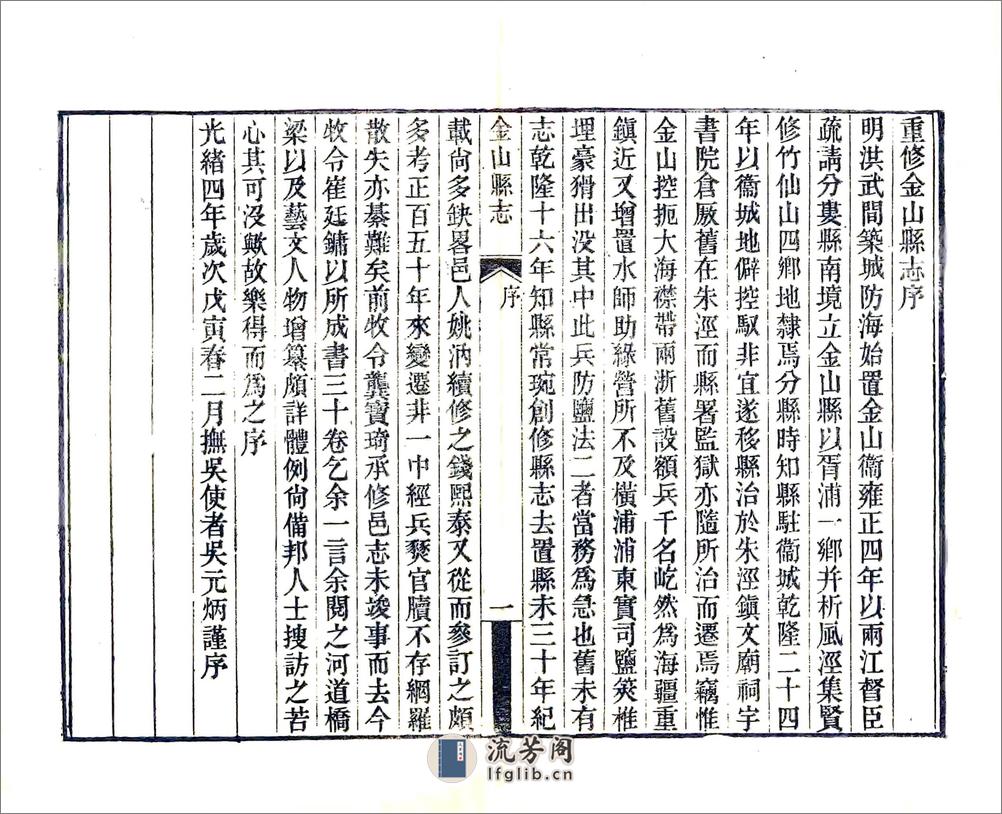 重修金山縣志序
明洪武間築城防海始置金山衞雍正四年以兩江督臣
疏請分婁縣南境立金山縣以胥浦一鄉并析風涇集賢
修竹仙山四鄉地隸焉分縣時知縣駐衞城乾隆二十四
年以衞城地僻控馭非宜遂移縣治於朱涇鎮文廟祠宇
書院倉厫舊在朱涇而縣署監獄亦隨所治而遷焉竊惟
金山控扼大海襟帶兩浙舊設額兵千名屹然為海疆重
鎮近又增置水師助綠營所不及橫浦浦東實司鹽筴椎
埋豪猾出没其中此兵防鹽法二者當務為急也舊未有
志乾隆十六年知縣常琬創修縣志去置縣未三十年紀
金山縣志
序
一
載尚多缺畧邑人姚汭續修之錢熙泰又從而參訂之頗
多考正百五十年來變遷非一中經兵燹官牘不存網羅
散失亦綦難矣前牧令龔寶琦承修邑志未竣事而去今
牧令崔廷鏞以所成書三十卷乞余一言余閱之河道橋
梁以及藝文人物增纂頗詳體例尚備邦人士搜訪之苦
心其可没歟故樂得而為之序
光緒四年歲次戊寅春二月撫吳使者吳元炳謹序
流芳阁
lfglib.cn